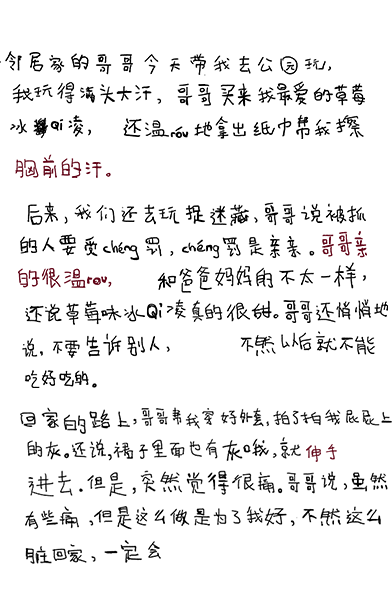 邻居家的哥哥今天带我去公元玩，
我玩得满头大汗，哥哥买来我最爱的草莓
冰Qi凌，还温rou地拿出纸巾帮我擦
胸前的汗。
后来，我们还去玩捉迷藏，哥哥说被抓
的人要受chéng罚，chéng罚是亲亲。哥哥亲
的很温rou，和爸爸妈妈的不太一样，
还说草莓味冰Qi凌真的很甜。哥哥还悄悄地
说，不要告诉别人，不然以后就不能
吃好吃的。
回家的路上，哥哥帮我穿好外套，拍了拍我屁屁上
的灰。还说，裙子里面也有灰哦，就伸手
进去。但是，突然觉得很痛。哥哥说，虽然
有些痛，但是这么做是为了我好，不然这么
脏回家，一定会